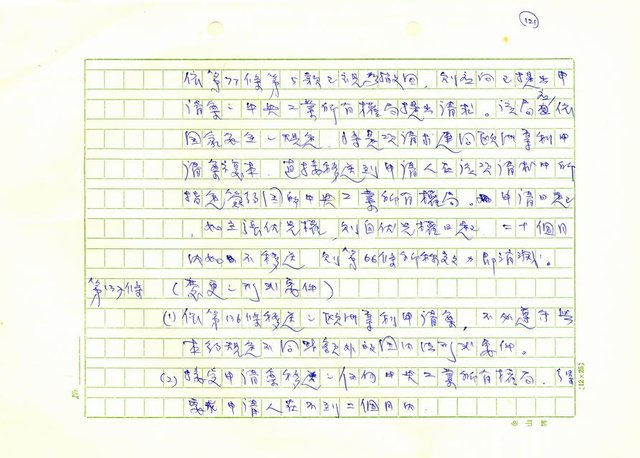 121
依第77條第5款已視為撤回,則應向已提出申
請案之中央工業所有權局提出請求。該局應依
國家安全之規定,將是項請求連同歐洲專利申
請案複本,直接移送到申請人在該項請求中所
指定簽約國的中央工業所有權局。申請日起
,如主張優先權,則自優先權日起二十個月
內如不移送,則第66條所稱效力即消滅。
第137條(變更之形式要件)
(1)依第136條移送之歐洲專利申請案,不必遵守與
本約規定不同或額外的國內法形式要件。
(2)接受申請案移送之任何中央工業所有權局,得
要求申請人在不到二個月內
(12×25)